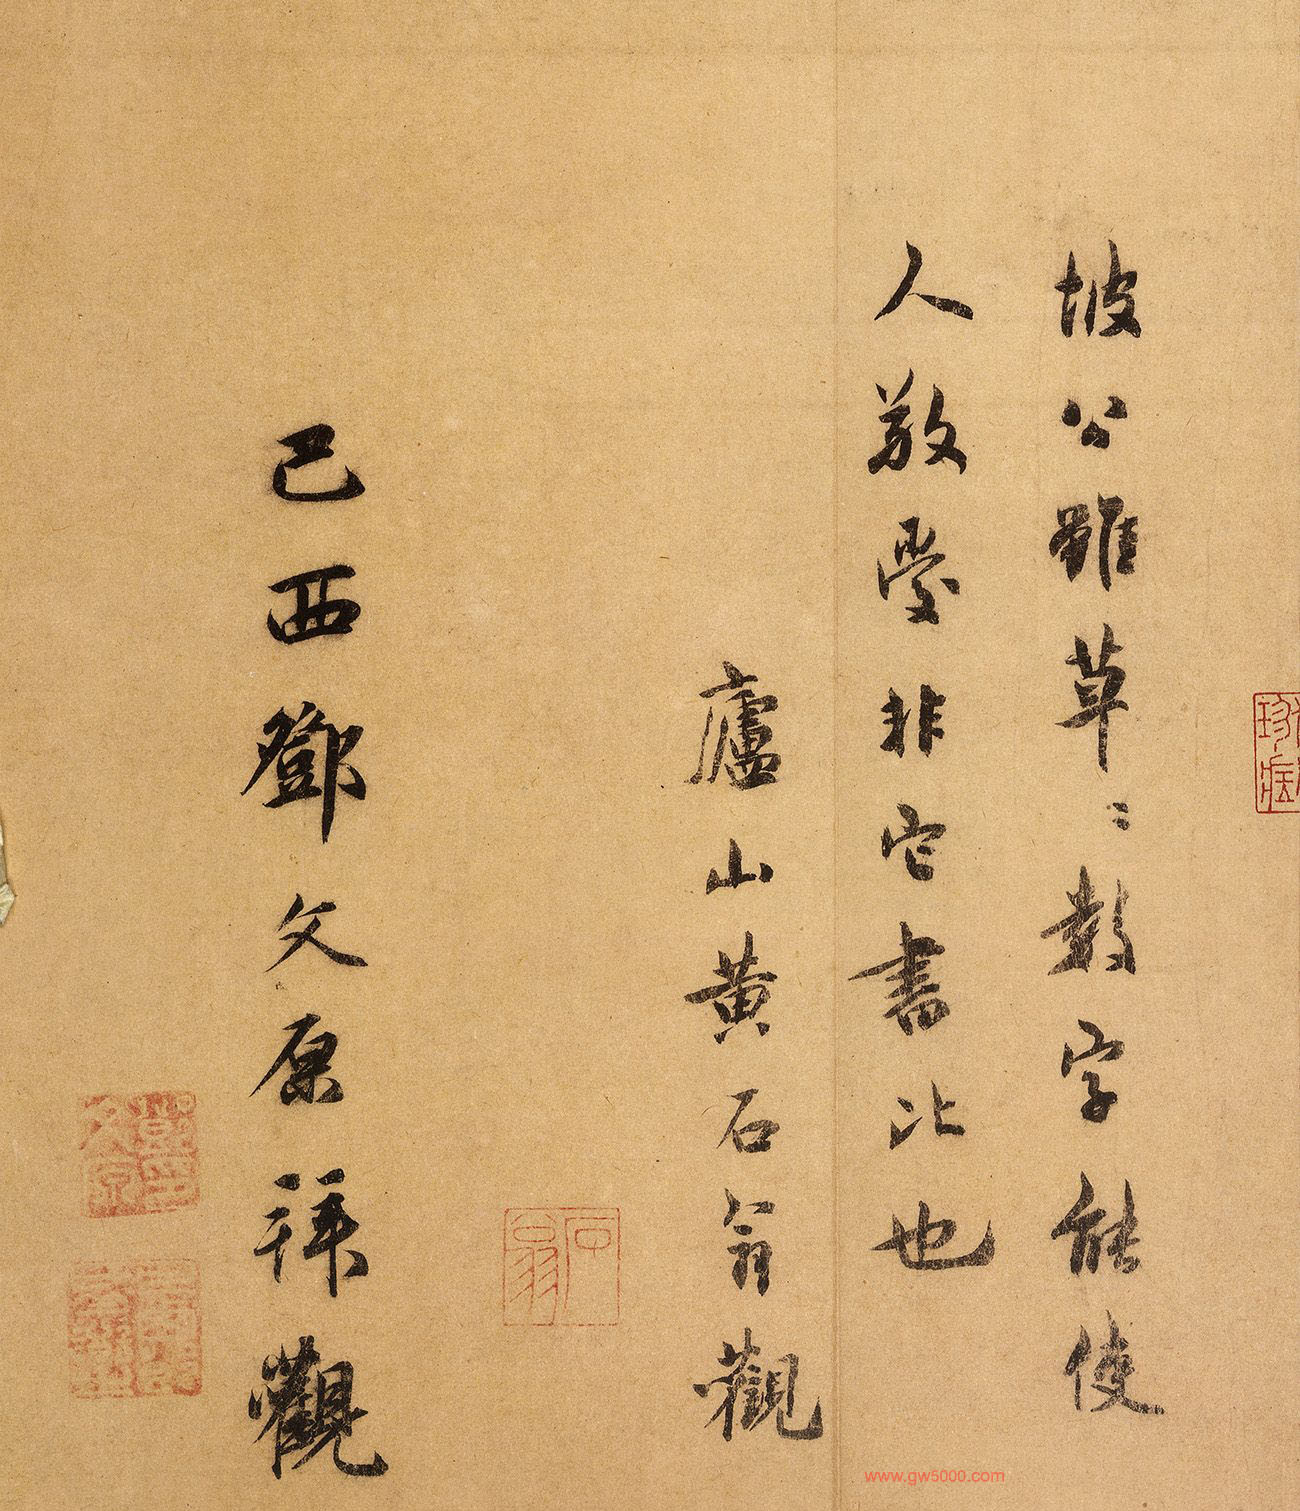 坡公雖草〻數字能使
人敬愛非它書比也
廬山黄石翁觀
石翁
己酉鄧文原拜觀
www.gw5000.com